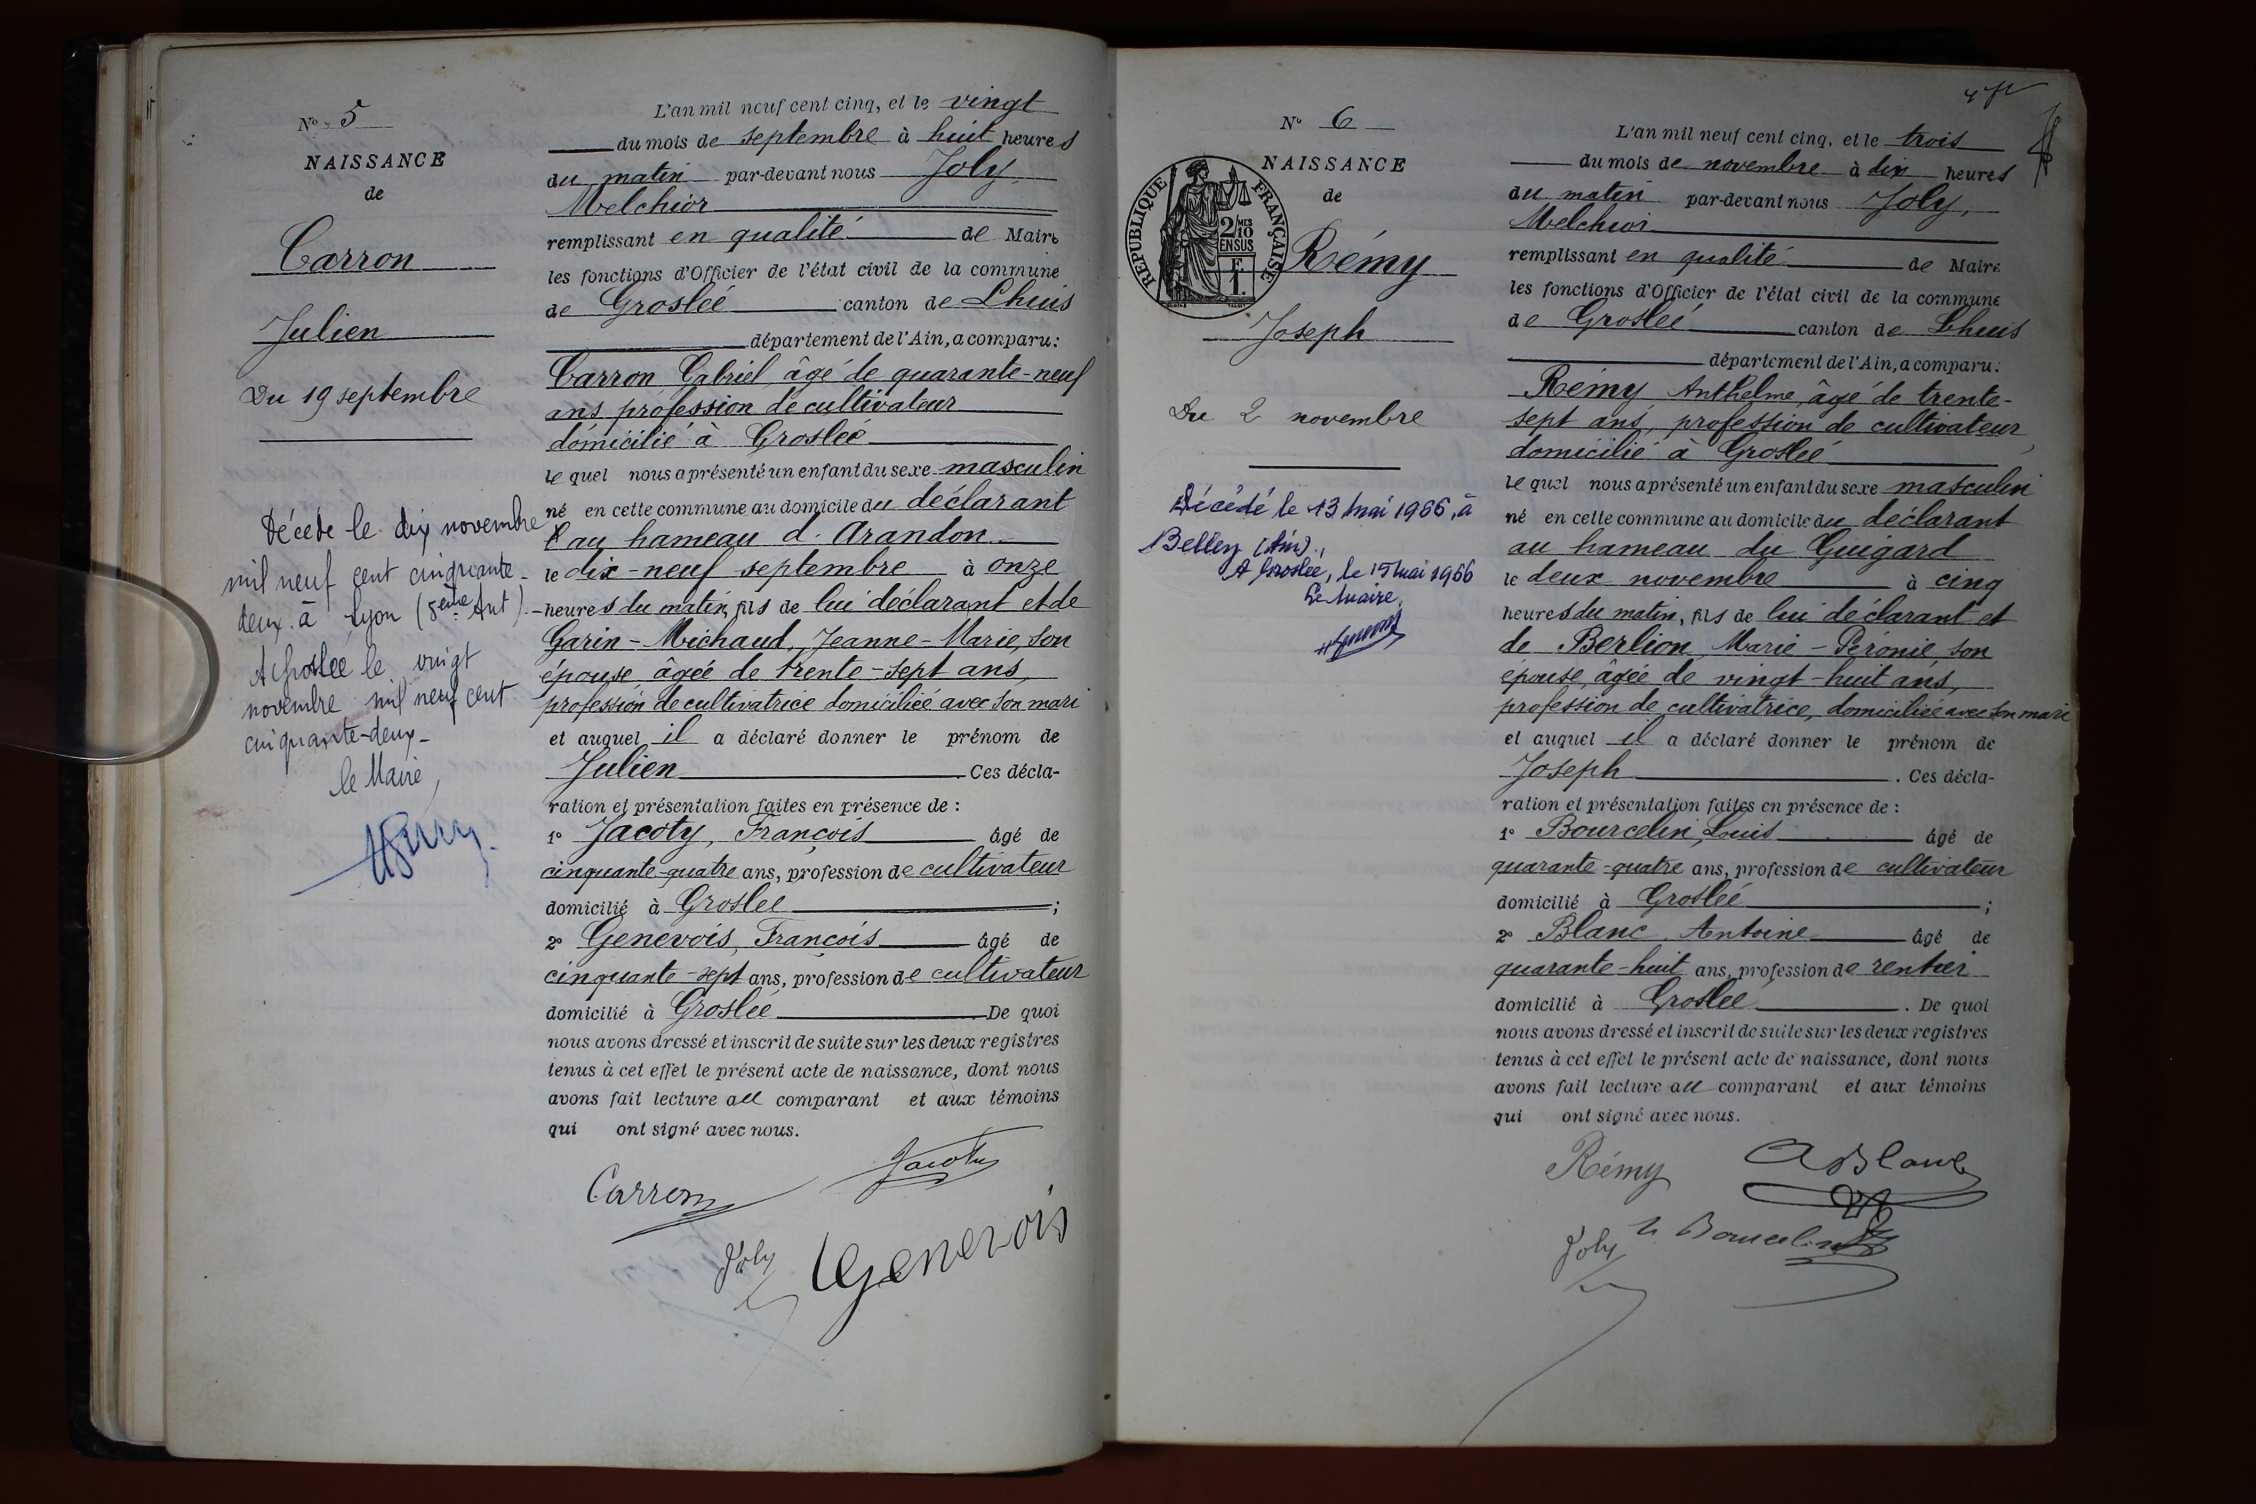 N° 5
NAISSANCE
de
Carron
Julien
Du 19 septembre
Décédé le dix novembre
mil neuf cent cinquante-
deux à Lyon (5eme Ant).
A Groslée le vingt
novembre mil neuf cent
cinquante-deux-
le Maire,
L'an mil neuf cent cinq, et le vingt
du mois de septembre à huit heures
du matin par-devant nous Joly,
Melchior
remplissant en qualité de Maire
les fonctions d'Officier de l'état civil de la commune
de Groslée canton de Lhuis
département de l'Ain, a comparu:
Carron Gabriel, âgé de quarante-neuf
ans profession de cultivateur
domicilié à Groslée
lequel nous a présenté un enfant du sexe masculin
né en cette commune au domicile du déclarant
au hameau d'Arandon
le dix-neuf septembre à onze
heures du matin, fils de lui déclarant et de
Garin-Michaud, Jeanne-Marie, son
épouse âgée de trente-sept ans,
profession de cultivatrice domiciliée avec son mari
et auquel il a déclaré donner le prénom de
Julien Ces décla-
ration et présentation faites en présence de :
1° Jacoty, François âgé de
cinquante-quatre ans, profession de cultivateur
domicilié à Groslée ;
2° Genevois, François âgé de
cinquante-sept ans, profession de cultivateur
domicilié à Groslée De quoi
nous avons dressé et inscrit de suite sur les deux registres
tenus à cet effet le présent acte de naissance, dont nous
avons fait lecture au comparant et aux témoins
qui ont signé avec nous.
Carron Jacoty
Joly Genevois
N° 6
NAISSANCE
de
RÉPUBLIQUE FRANÇAISE
2/10MES
EN SUS
F.
1.
Rémy
Joseph
Du 2 novembre
Décédé le 13 mai 1966, à
Belley (Ain).,
A Groslée, le 15 mai 1966
Le Maire,
L'an mil neuf cent cinq, et le trois
du mois de novembre à dix heures
du matin par-devant nous Joly,
Melchior
remplissant en qualité de Maire
les fonctions d'Officier de l'état civil de la commune
de Groslée canton de Lhuis
département de l'Ain, a comparu:
Rémy Anthelme, âgé de trente-
sept ans, profession de cultivateur,
domicilié à Groslée
lequel nous a présenté un enfant du sexe masculin
né en cette commune au domicile du déclarant
au hameau du Guigard
le deux novembre à cinq
heures du matin, fils de lui déclarant et
de Berlion, Marie-Péronie, son
épouse, âgée de vingt-huit ans,
profession de cultivatrice, domiciliée avec son mari
et auquel il a déclaré donner le prénom de
Joseph . Ces décla-
ration et présentation faites en présence de :
1° Bourcelin, Louis âgé de
quarante-quatre ans, profession de cultivateur
domicilié à Groslée ;
2° Blanc, Antoine âgé de
quarante-huit ans, profession de rentier
domicilié à Groslée . De quoi
nous avons dressé et inscrit de suite sur les deux registres
tenus à cet effet le présent acte de naissance, dont nous
avons fait lecture au comparant et aux témoins
qui ont signé avec nous.
Rémy A Blanc
Joly L Bourcelin